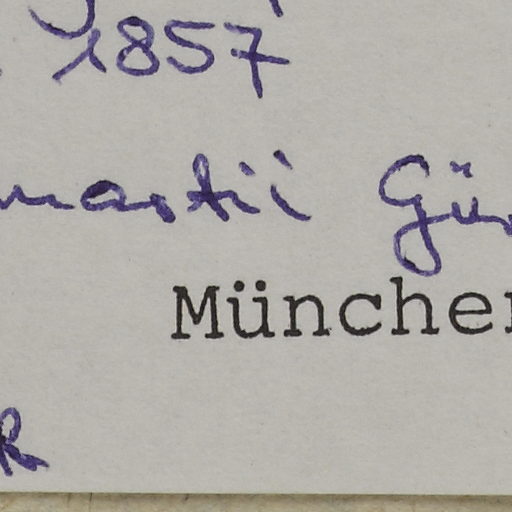 1857
mastii Gü
München
R